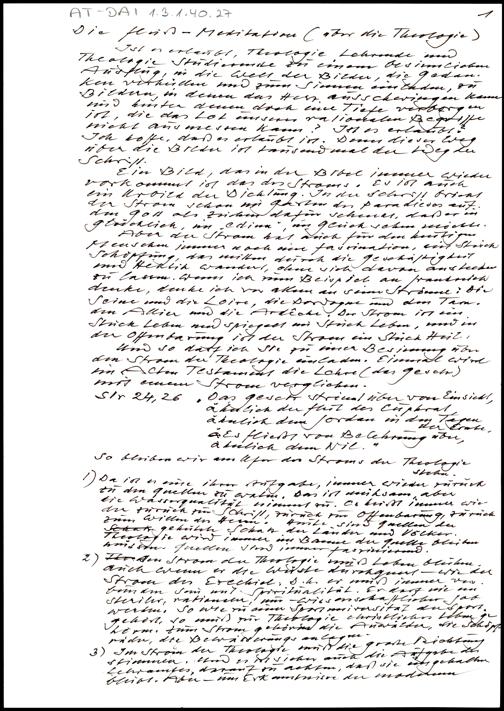 AT-DAI 1.3.1.40.27
1
Die Fluß-Meditation (über die Theologie)
Ist es erlaubt, Theologie Lehrende und
Theologie Studierende zu einem besinnlichen
Ausflug, in die Welt der Bilder, die Gedan-
ken verbinden und zum Sinnen einladen, zu
Bildern, in denen das Herz ausschwingen kann
und hinter denen doch eine Tiefe verborgen
ist, die das Lot unserer rationalen Begriffe
nicht ausmessen kann? Ist es erlaubt?
Ich hoffe, daß es erlaubt ist. Denn dieser Weg
über die Bilder ist tausendmal der Weg der
Schrift.
Ein Bild, das in der Bibel immer wieder
vorkommt ist das des Stroms. Es ist auch
ein Urbild der Dichtung. In der Schrift
der Strom schon im Garten des Paradieses auf,
den Gott als Zeichen dafür schenkt, daß er in
Glücklich, im "Edinu", im Glück sehen
Aber der Strom hat auch für den heutigen
Menschen immer noch eine Faszination, ein Stück
Schöpfung, das mitten durch die Geschäftigkeit
und Hektik wandert, ohne sich davon anstecken
zu lassen. Wenn ich zum Beispiel an Frankreich
denke, denke ich vor allem an seine Ströme: Die
Seine und die Loire, die Dordogne und den Tarn.
den Allier und die Ardèche. Der Strom ist ein
Stück Leben und spiegelt ein Stück Leben, und in
der Offenbarung ist der Strom ein Stück Heil.
Und so darf ich Sie zu einer Besinnung über
den Strom der Theologie einladen. Einmal wird
im Alten Testament die Lehre (das Gesetz)
mit einem Strom verglichen.
Sir 24,26 "Das Gesetz strömt über von Einsicht,
ähnlich der Flut des Euphrat,
ähnlich dem Jordan in den Tagen
der Ernte,
Es fließt von Belehrung über,
ähnlich dem Nil."
So bleiben wir am Ufer des Stroms der Theologie
stehn.
1) Da ist es eine ihrer Aufgabe, immer wieder zurück
zu den Quellen zu Das ist mühsam, aber
die Wasserqualität bestimmt es. Es heißt immer wie-
der zurück zur Schrift, zurück zur Offenbarung, zurück
zum Willen des Herrn. Heute sind Quellen der
gehütete Schatz der Länder und Völker.
Theologie wird immer im Banne der Quelle bleiben
müssen. Quellen sind immer faszinierend.
2) Den Strom der Theologie muß Leben blühen,
auch wenn er die Wüste durchquert - wie der
Strom des Ezechiel. D.h. er muß immer ver-
bunden sein mit: Spiritualität. Er darf nie im
sterilen, rationalen,
werden. So wie zu einer Sportuniversität der Sport
gehört, so muß zur Theologie christliches Leben ge-
hören. Zum Strom gehören die Auwälder, die Schöpf-
räder, die Bewässerungsanlagen.
3) Im Strom der Theologie muß die große Richtung
stimmen. Und es ist sicher auch die Aufgabe des
Lehramtes, darauf zu achten, daß sie eingehalten
bleibt. Aber - um Erkenntnisse der modernen